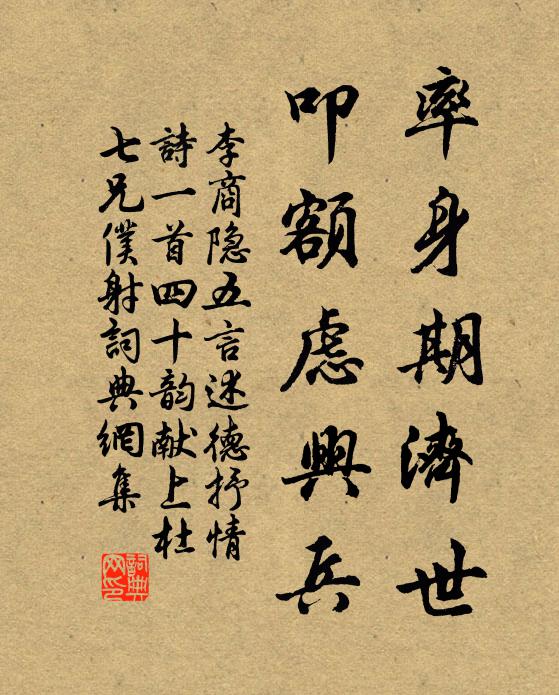 率身期濟世
叩額慮興兵
李商隐五言述德抒情
詩一首四十韵献上杜
七兄僕射詞典網集
詞典網印